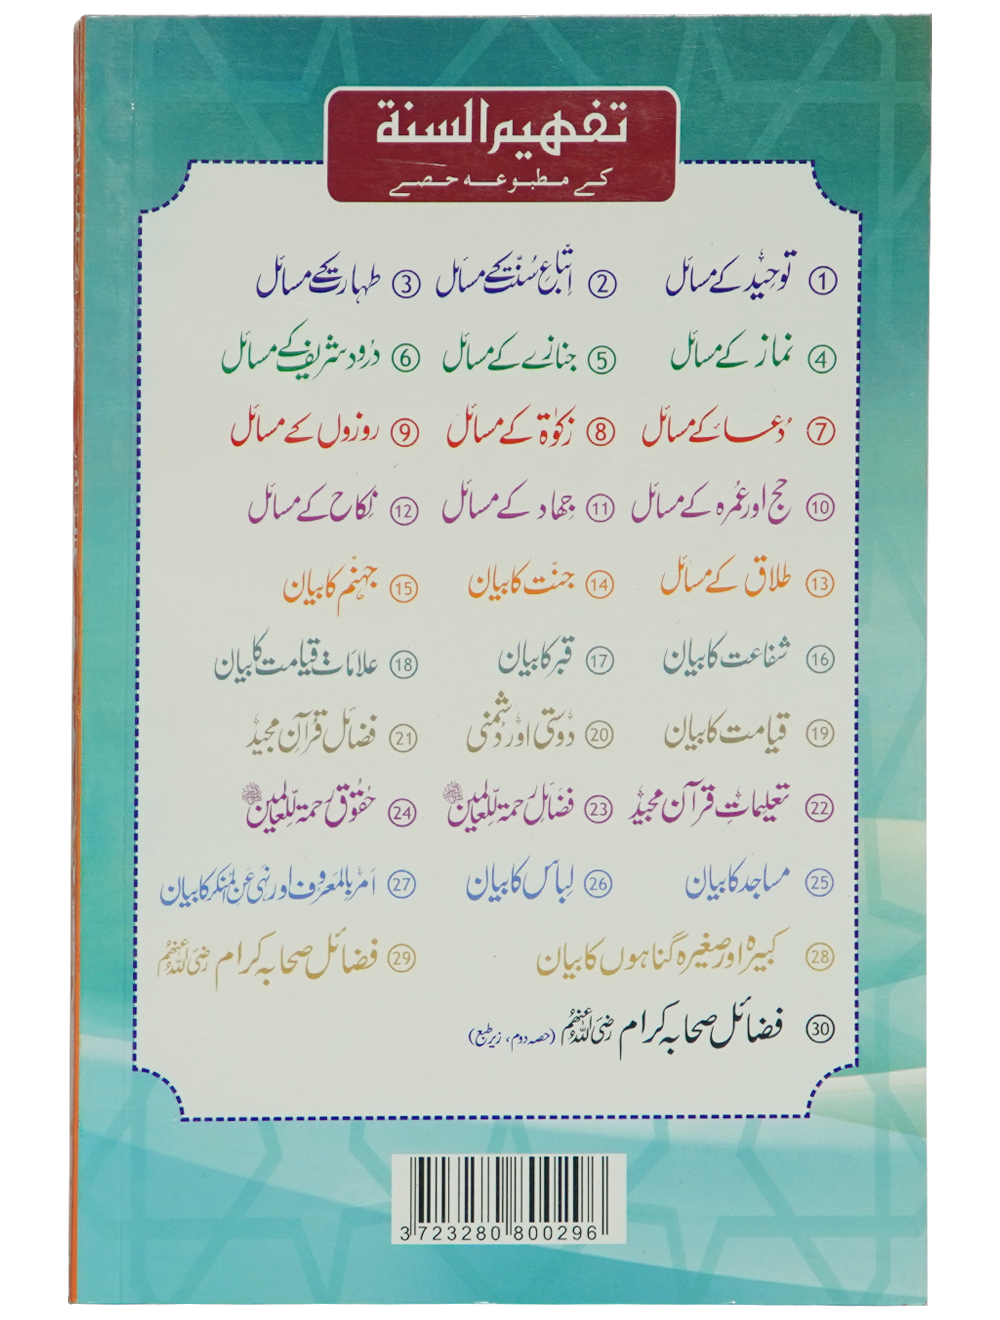 تفهیم السنۃ
کے مطبوعہ حصے
① توحید کے مسائل ② اتباعِ سُنّت کے مسائل ③ طہارت کے مسائل
④ نماز کے مسائل ⑤ جنازے کے مسائل ⑥ درود شریف کے مسائل
⑦ دُعاء کے مسائل ⑧ زکوٰۃ کے مسائل ⑨ روزوں کے مسائل
⑩ حج اور عُمرہ کے مسائل ⑪ جہاد کے مسائل ⑫ نِکاح کے مسائل
⑬ طلاق کے مسائل ⑭ جنّت کا بیان ⑮ جہنّم کا بیان
⑯ شفاعت کا بیان ⑰ قبر کا بیان ⑱ علاماتِ قیامت کا بیان
⑲ قیامت کا بیان ⑳ دوستی اور دُشمنی ㉑ فضائل قُرآن مجید
㉒ تعلیماتِ قرآن مجید ㉓ فضائل رحمۃ لِّلعالمین ﷺ ㉔ حقوق رحمۃ لِّلعالمین ﷺ
㉕ مساجد کا بیان ㉖ لِباس کا بیان ㉗ امر بالمعروف اور نہی عن المنکر کا بیان
㉘ کبیرہ اور صغیرہ گناہوں کا بیان ㉙ فضائل صحابہ کرام رضی اللہ عنہم
㉚ فضائل صحابہ کرام رضی اللہ عنہم (حصہ دوم، زیر طبع)
3723280800296